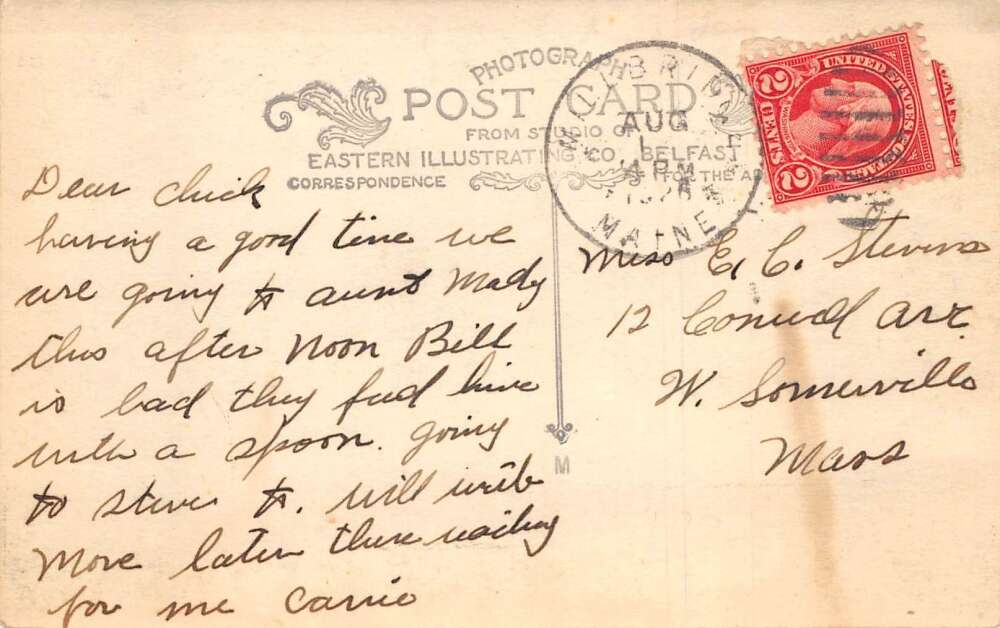 PHOTOGRAPH
POST CARD
FROM STUDIO OF
EASTERN ILLUSTRATING CO. BELFAST
CORRESPONDENCE
FOR THE AD
MILLBRIDGE
AUG
1
4 PM
MAINE
UNITED STATES POSTAGE
WASHINGTON
2 CENTS 2
Dear Chick
having a good time we
are going to aunt Mady
this after Noon Bill
is bad they feed hive
with a spoon. going
to steves to. will write
More later there waiting
for me Carrie
Miss E. C. Stevens
12 Conwell Ave
W. Somerville
Mass
M